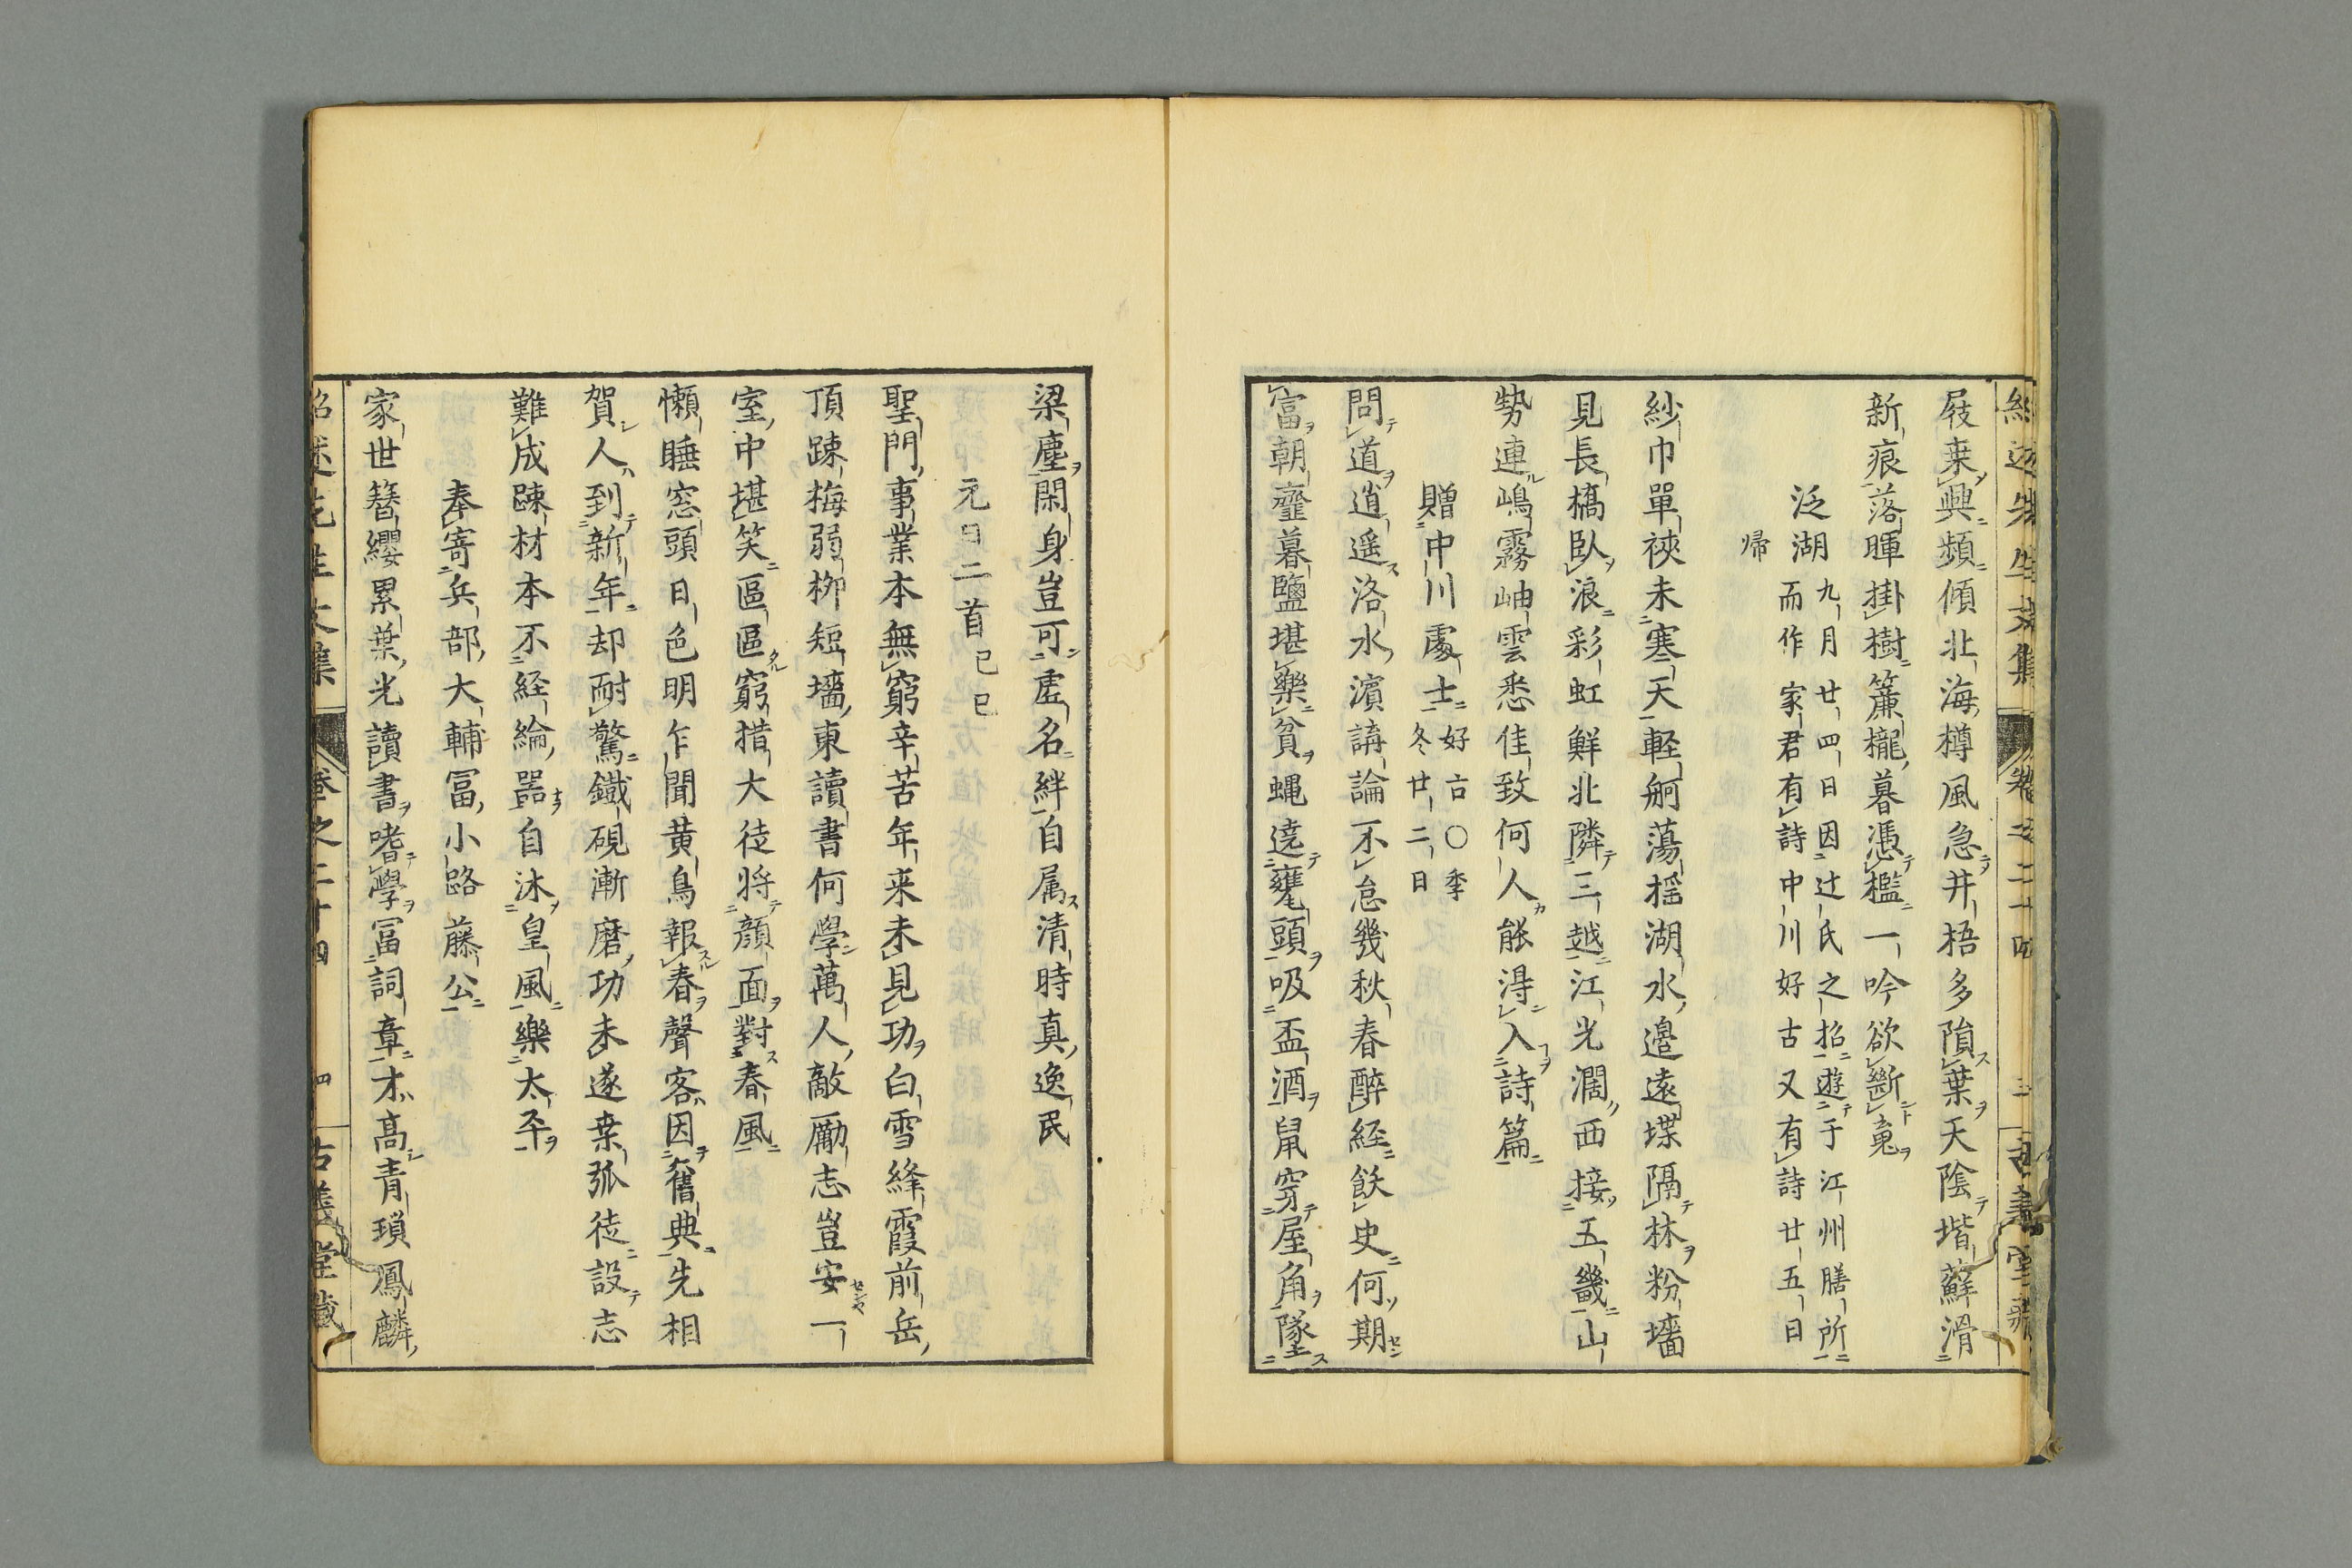 屐來興頻傾北海樽風急井梧多隕葉天陰堦蘚滑
新痕落暉掛樹簾櫳暮憑檻一吟欲斷䰟
泛湖 九月廿四日因辻氏之招遊于江州膳所
而作家君有詩中川好古又有詩廿五日
帰
紗巾單裌未寒天軽舸蕩揺湖水邉遠堞隔林粉墻
見長橋臥浪彩虹鮮北隣三越江光濶西接五畿山
勢連嶋霧岫雲悉佳致何人能得入詩篇
贈中川處士 好古〇季
冬廿二日
問道逍遥洛水濱講論不怠幾秋春醉経飫史何期
富朝虀暮鹽堪樂貧蝿遶甕頭吸盃酒鼠穿屋角墜
梁塵閑身豈可虚名絆自属清時真逸民
元日二首 己巳
聖門事業本無窮辛苦年来未見功白雪絳霞前岳
頂踈梅弱栁短墻東讀書何學萬人敵勵志豈安一
室中堪笑區區窮措大徒将顔面對春風
懶睡窓頭日色明乍聞黄鳥報春聲客因舊典先相
賀人到新年却耐驚鐵硯漸磨功未遂桒弧徒設志
難成踈材本不経綸器自沐皇風樂太平
奉寄兵部大輔冨小路藤公
家世簪纓累葉光讀書嗜學冨詞章才高青瑣鳳麟
紹述先生文集 巻之二十四 四 古義堂蔵